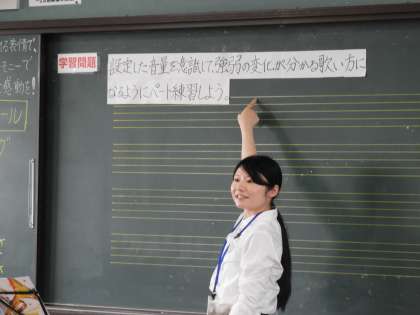 学習問題
設定した音量を意識して、強弱の変化が分かる歌い方に
なるようにパート練習しよう。
表情で、
モニーで
感動を!
ール